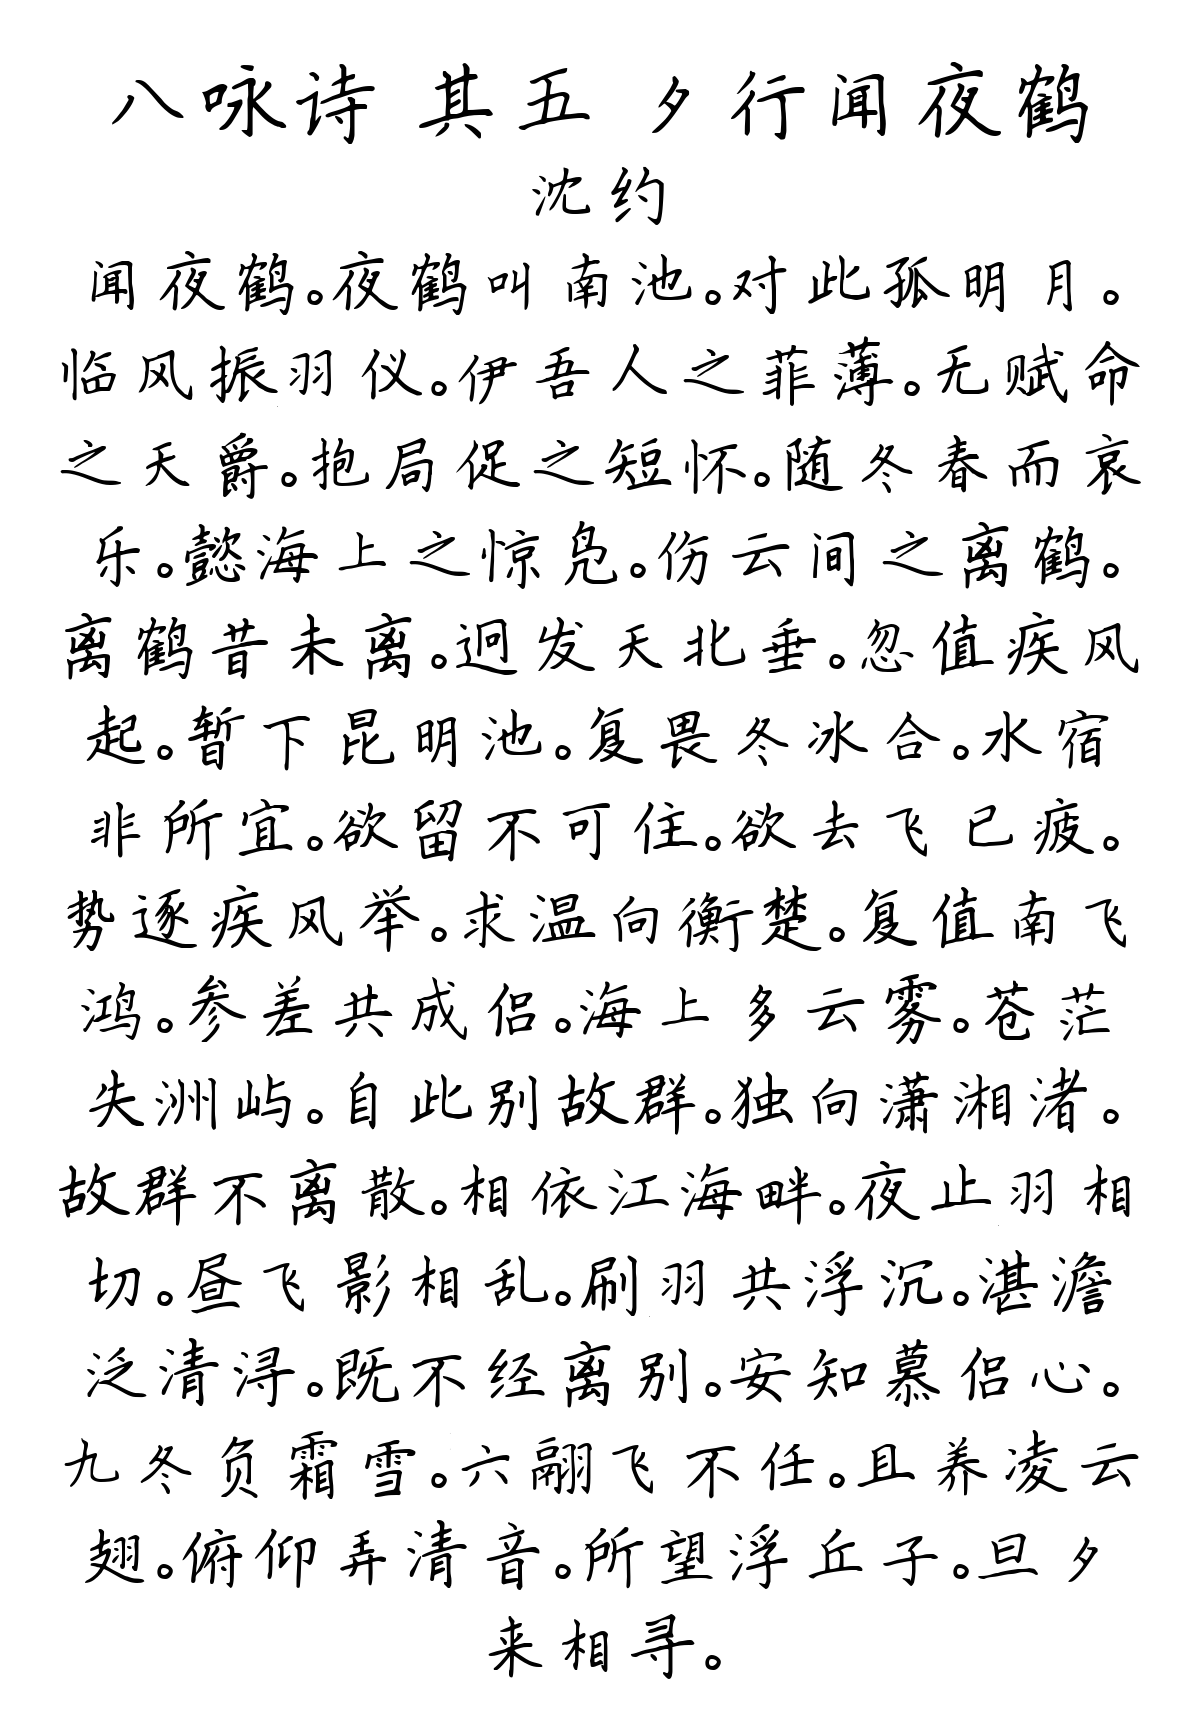 八咏诗 其五 夕行闻夜鹤
沈约
闻夜鹤。夜鹤叫南池。对此孤明月。
临风振羽仪。伊吾人之菲薄。无赋命
之天爵。抱局促之短怀。随冬春而哀
乐。懿海上之惊凫。伤云间之离鹤。
离鹤昔未离。迥发天北垂。忽值疾风
起。暂下昆明池。复畏冬冰合。水宿
非所宜。欲留不可住。欲去飞已疲。
势逐疾风举。求温向衡楚。复值南飞
鸿。参差共成侣。海上多云雾。苍茫
失洲屿。自此别故群。独向潇湘渚。
故群不离散。相依江海畔。夜止羽相
切。昼飞影相乱。刷羽共浮沉。湛澹
泛清浔。既不经离别。安知慕侣心。
九冬负霜雪。六翮飞不任。且养凌云
翅。俯仰弄清音。所望浮丘子。旦夕
来相寻。